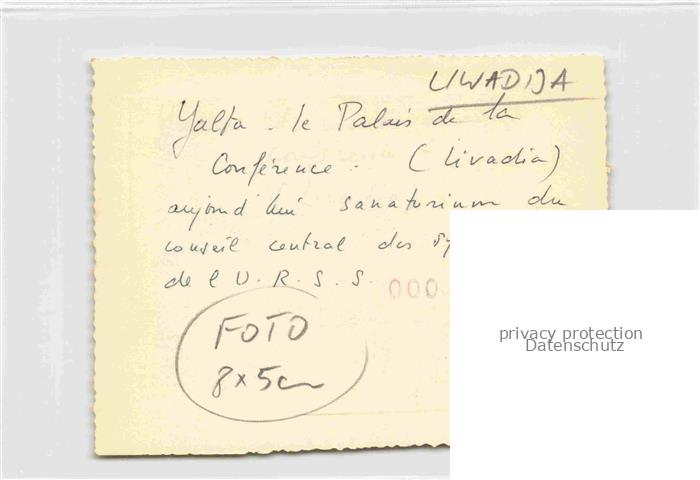 LIWADIJA
Yalta - le Palais de la
Conférence - (Livadia)
aujourd'hui sanatorium du
conseil central des
de l'U.R.S.S.
000
FOTO
8x5cm
privacy protection
Datenschutz